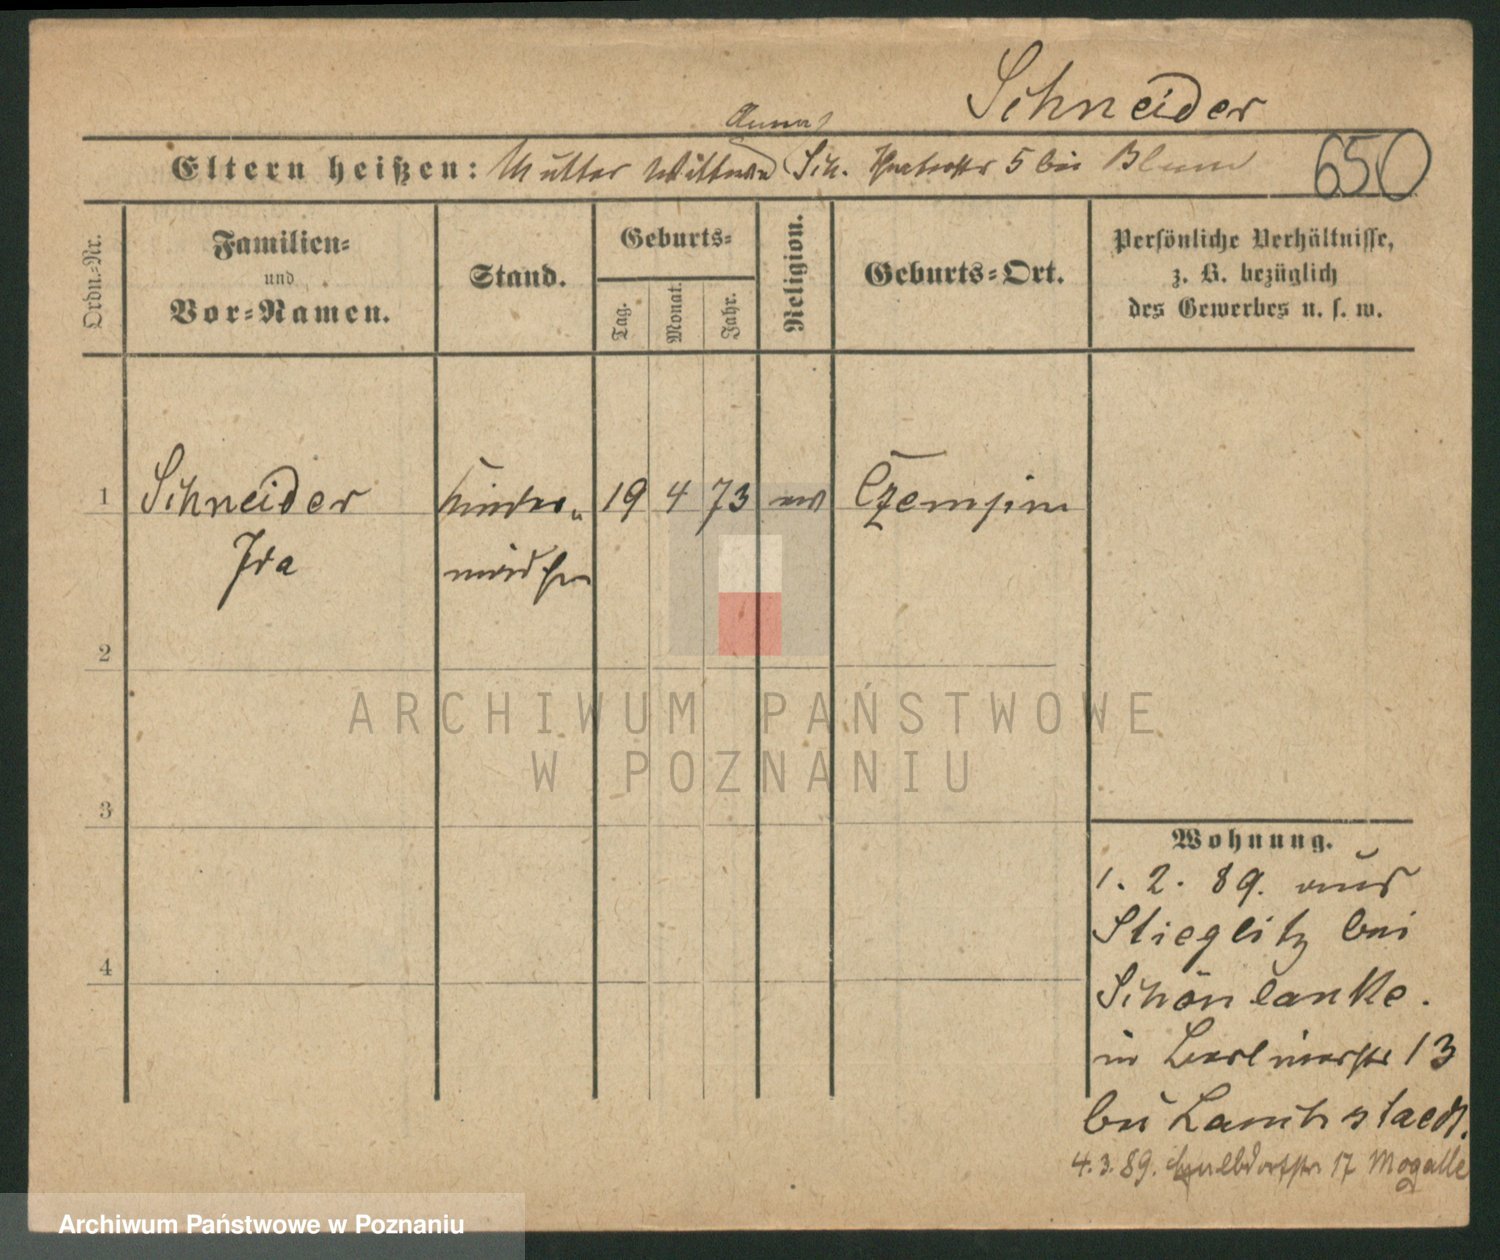 Schneider
Anna
Eltern heißen: Mutter Wittwe Sch. 5 bei Blum
650
Ordn.-Nr.
Familien-
und
Vor-Namen.
Stand.
Geburts-
Tag.
Monat.
Jahr.
Religion.
Geburts-Ort.
Persönliche Verhältnisse,
z. B. bezüglich
des Gewerbes u. s. w.
1 Schneider Kinder- 19 4 73 ev Czempin
Ida mädchen
2
3
4
Wohnung.
1. 2. 89. aus
Stieglitz bei
Schönlanke.
in Berlinerstr 13
bei
4. 3. 89. 17 Mogalle
ARCHIWUM PAŃSTWOWE
W POZNANIU
Archiwum Państwowe w Poznaniu